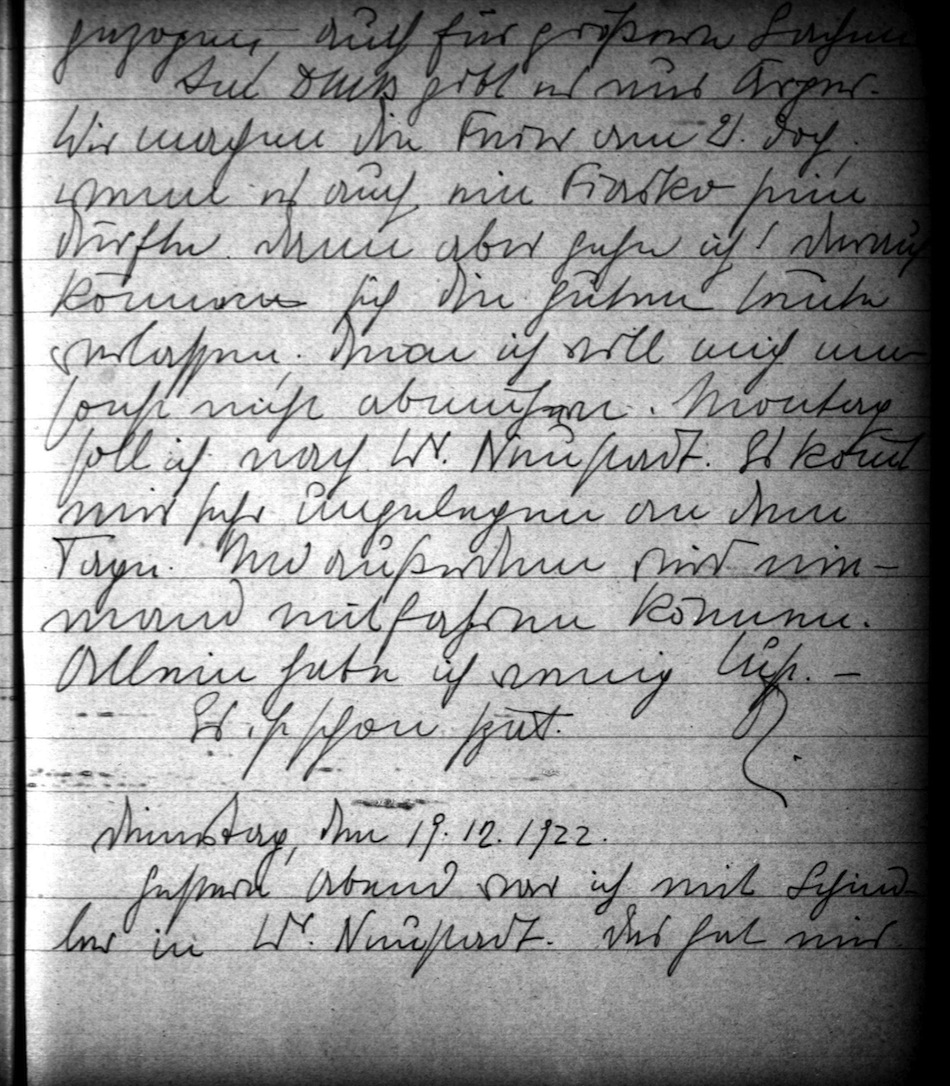 gezogen, auch für größere Sachen
Und Dank gibt es nur Ärger.
Wir machen die Feier am 21. doch,
wenn es auch ein Fiasko sein
dürfte. Dann aber gehe ich! Darauf
können sich die guten Leute
verlassen. Denn ich will mich um-
sonst nicht abmühen. Montag
soll ich nach Wr. Neustadt. Es komt
mir sehr ungelegen an dem
Tage. Und außerdem wird nie-
mand mitfahren können.
Allein habe ich wenig Lust. –
Es ist schon spät.
Dienstag, den 19.12.1922.
Gestern Abend war ich mit Schind-
ler in Wr. Neustadt. Das hat mir